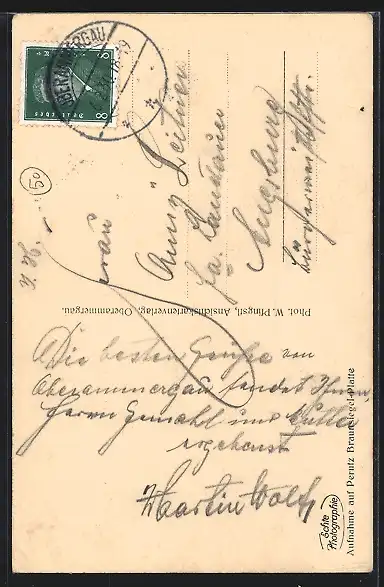 OBERAMMERGAU
8 8
Deutsches
50
Frau
Anny Leitner
Fa. Landauer
Augsburg
Bürgermeisterstr.
Phot. W. Pfingstl, Ansichtskartenverlag, Oberammergau.
Die besten Grüße von
Oberammergau sendet Ihnen
Herrn Gemahl und Mutter
ergebenst
Martin Wolf
Echte
Photographie
Aufnahme auf Perutz Braunsiegel-Platte